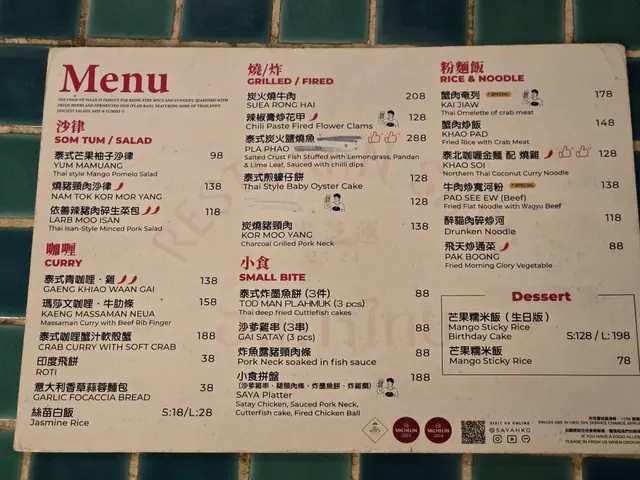 Menu
THE FOOD OF ISAAN IS FAMOUS FOR BEING VERY SPICY AND PUNGENT, SEASONED WITH
沙律
SOM TUM / SALAD
泰式芒果柚子沙律 98
YUM MAMUANG
Thai style Mango Pomelo Salad
燒豬頸肉沙律 138
NAM TOK KOR MOR YANG
依善辣豬肉碎生菜包 118
LARB MOO ISAN
Thai Isan-Style Minced Pork Salad
咖喱
CURRY
泰式青咖喱·雞 138
GAENG KHIAO WAAN GAI
瑪莎文咖喱·牛肋條 158
KAENG MASSAMAN NEUA
Massaman Curry with Beef Rib Finger
泰式咖喱蟹汁軟殼蟹 188
CRAB CURRY WITH SOFT CRAB
印度飛餅 38
ROTI
意大利香草蒜蓉麵包 38
GARLIC FOCACCIA BREAD
絲苗白飯 S:18/L:28
Jasmine Rice
燒/炸
GRILLED / FIRED
炭火燒牛肉 208
SUEA RONG HAI
辣椒膏炒花甲 128
Chili Paste Fired Flower Clams
泰式炭火鹽燒魚 288
PLA PHAO
Salted Crust Fish Stuffed with Lemongrass, Pandan
& Lime Leaf, Sauced with chilli dips
泰式煎蠔仔餅 128
Thai Style Baby Oyster Cake
128
炭燒豬頸肉 138
KOR MOO YANG
Charcoal Grilled Pork Neck
小食
SMALL BITE
泰式炸墨魚餅 (3件) 88
TOD MAN PLAHMUK (3 pcs)
Thai deep fried Cuttlefish cakes
沙爹雞串 (3串) 88
GAI SATAY (3 pcs)
炸魚露豬頸肉條 88
Pork Neck soaked in fish sauce
小食拼盤 188
(沙爹雞串、豬頸肉條、炸墨魚餅、炸雞槌)
SAYA Platter
Satay Chicken, Sauced Pork Neck,
Cutterfish cake, Fired Chicken Ball
粉麵飯
RICE & NOODLE
蟹肉奄列 SPECIAL 178
KAI JIAW
Thai Omelette of crab meat
蟹肉炒飯 148
KHAO PAD
Fried Rice with Crab Meat
泰北咖喱金麵 配 燒雞 128
KHAO SOI
Northern Thai Coconut Curry Noodle
牛肉炒寬河粉 SPECIAL 138
PAD SEE EW (Beef)
Fried Flat Noodle with Wagyu Beef
醉貓肉碎炒河 118
Drunken Noodle
飛天炒通菜 88
PAK BOONG
Fried Morning Glory Vegetable
Dessert
芒果糯米飯（生日版）
Mango Sticky Rice
Birthday Cake S:128 / L: 198
芒果糯米飯
Mango Sticky Rice 78
MICHELIN
2023
MICHELIN
2024
VISIT US ONLINE
@SAYAHKG
PRICES ARE IN HKD, 10% SERVICE CHARGE APPL
IF YOU HAVE A FOOD ALLER
PLEASE IN FROM US WHEN ORDER